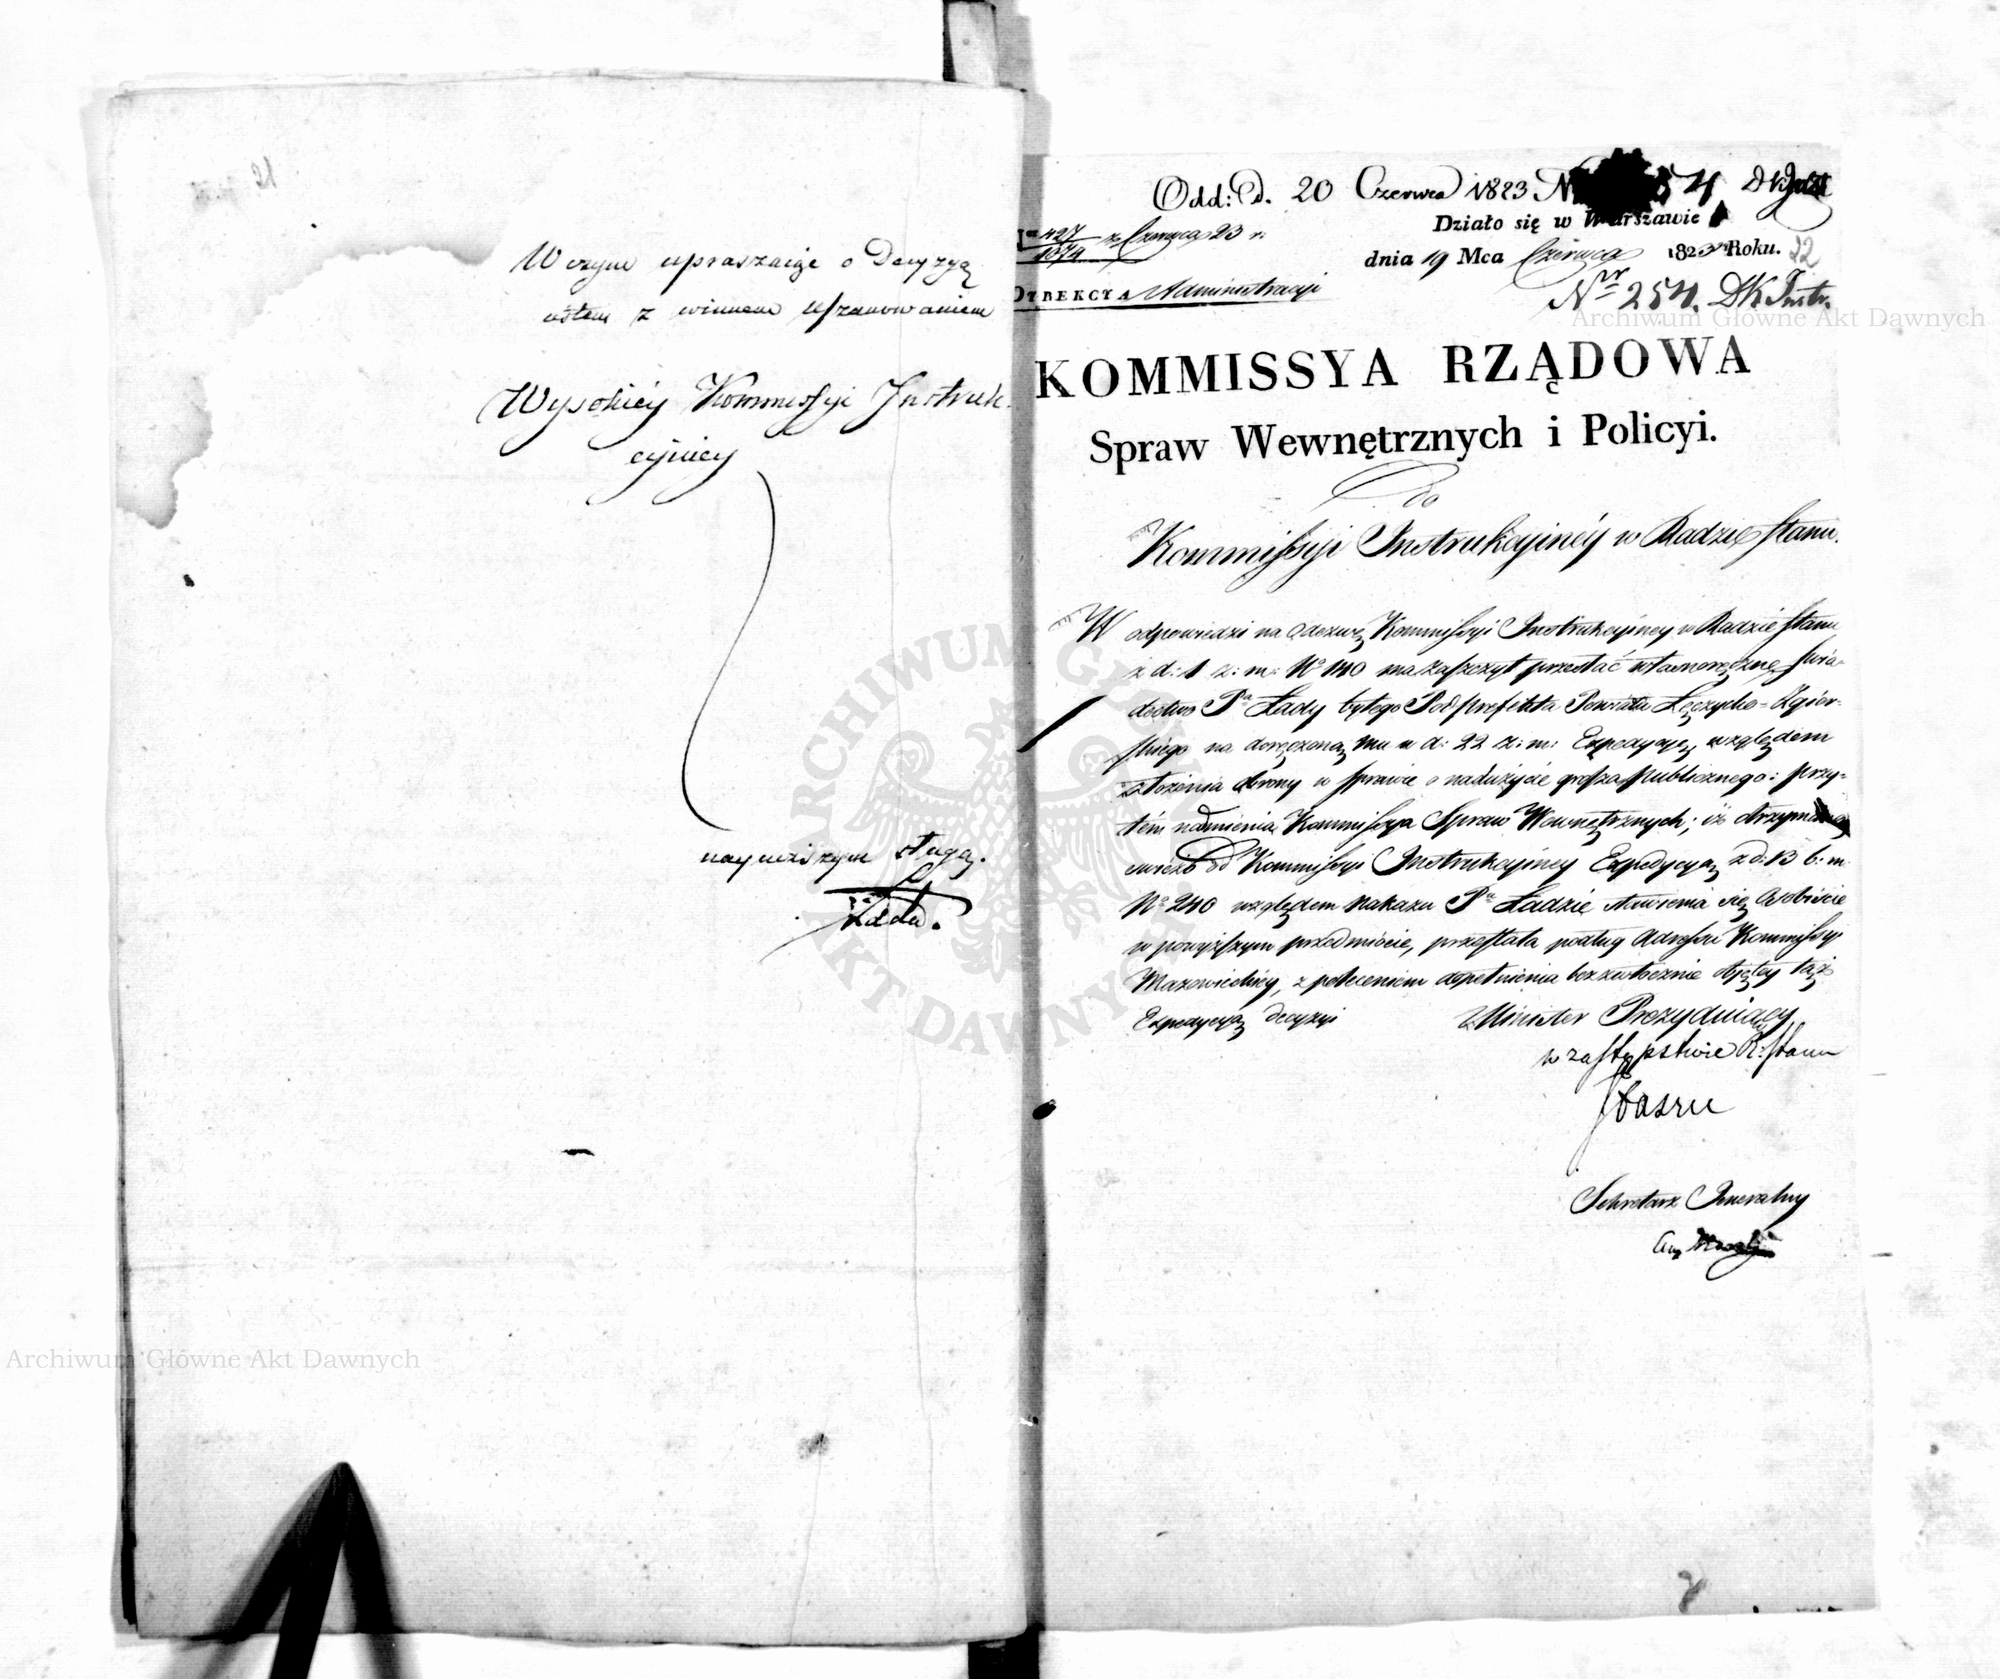 W czym upraszaiąc o Decyzyą
istem z winnem uszanowaniem
Wysokiéy Kommissyi Instruk-
cyjnéy
nayniższym sługą.
Łada.
Odd: d. 20 Czerwca 1823 N 54
Działo się w Warszawie
dnia 19 Mca Czerwca 1823 Roku. 22
427/1874 z Czerwca 23 r.
Nr 254. DK Instr.
DYREKCYA Administracyi
KOMMISSYA RZĄDOWA
Spraw Wewnętrznych i Policyi.
do
Kommissyi Instrukcyinéy w Radzie Stanu.
W odpowiedzi na Odezwę Kommissyi Instrukcyiney w Radzie Stanu
z d: 1 z: m: No 140 ma zaszczyt przesłać własnoręczne świa-
dectwo Pa Łady byłego Podprefekta Powiatu Łęczycko-Zgier-
skiego na doręczoną mu w d: 22 z: m: Expedycyę, względem
złożenia obrony w sprawie o nadużycie grosza publicznego: przy-
tém nadmienia Kommissya Spraw Wewnętrznych; iż otrzymaną
świeżo od Kommissyi Instrukcyiney Expedycyą z d: 13 b: m.
No 240 względem nakazu Pu Ładzie stawienia się Osobiście
w powyższym przedmiocie, przesłała podług Adressu Kommissyi
Mazowieckiey, z poleceniem dopełnienia bezzwłocznie objętey tąż
Expedycyą decyzyi
Minister Prezyduiący
w zastępstwie R: Stanu
Staszic
Sekretarz Jeneralny
Archiwum Główne Akt Dawnych
Archiwum Główne Akt Dawnych
ARCHIWUM GŁÓWNE AKT DAWNYCH